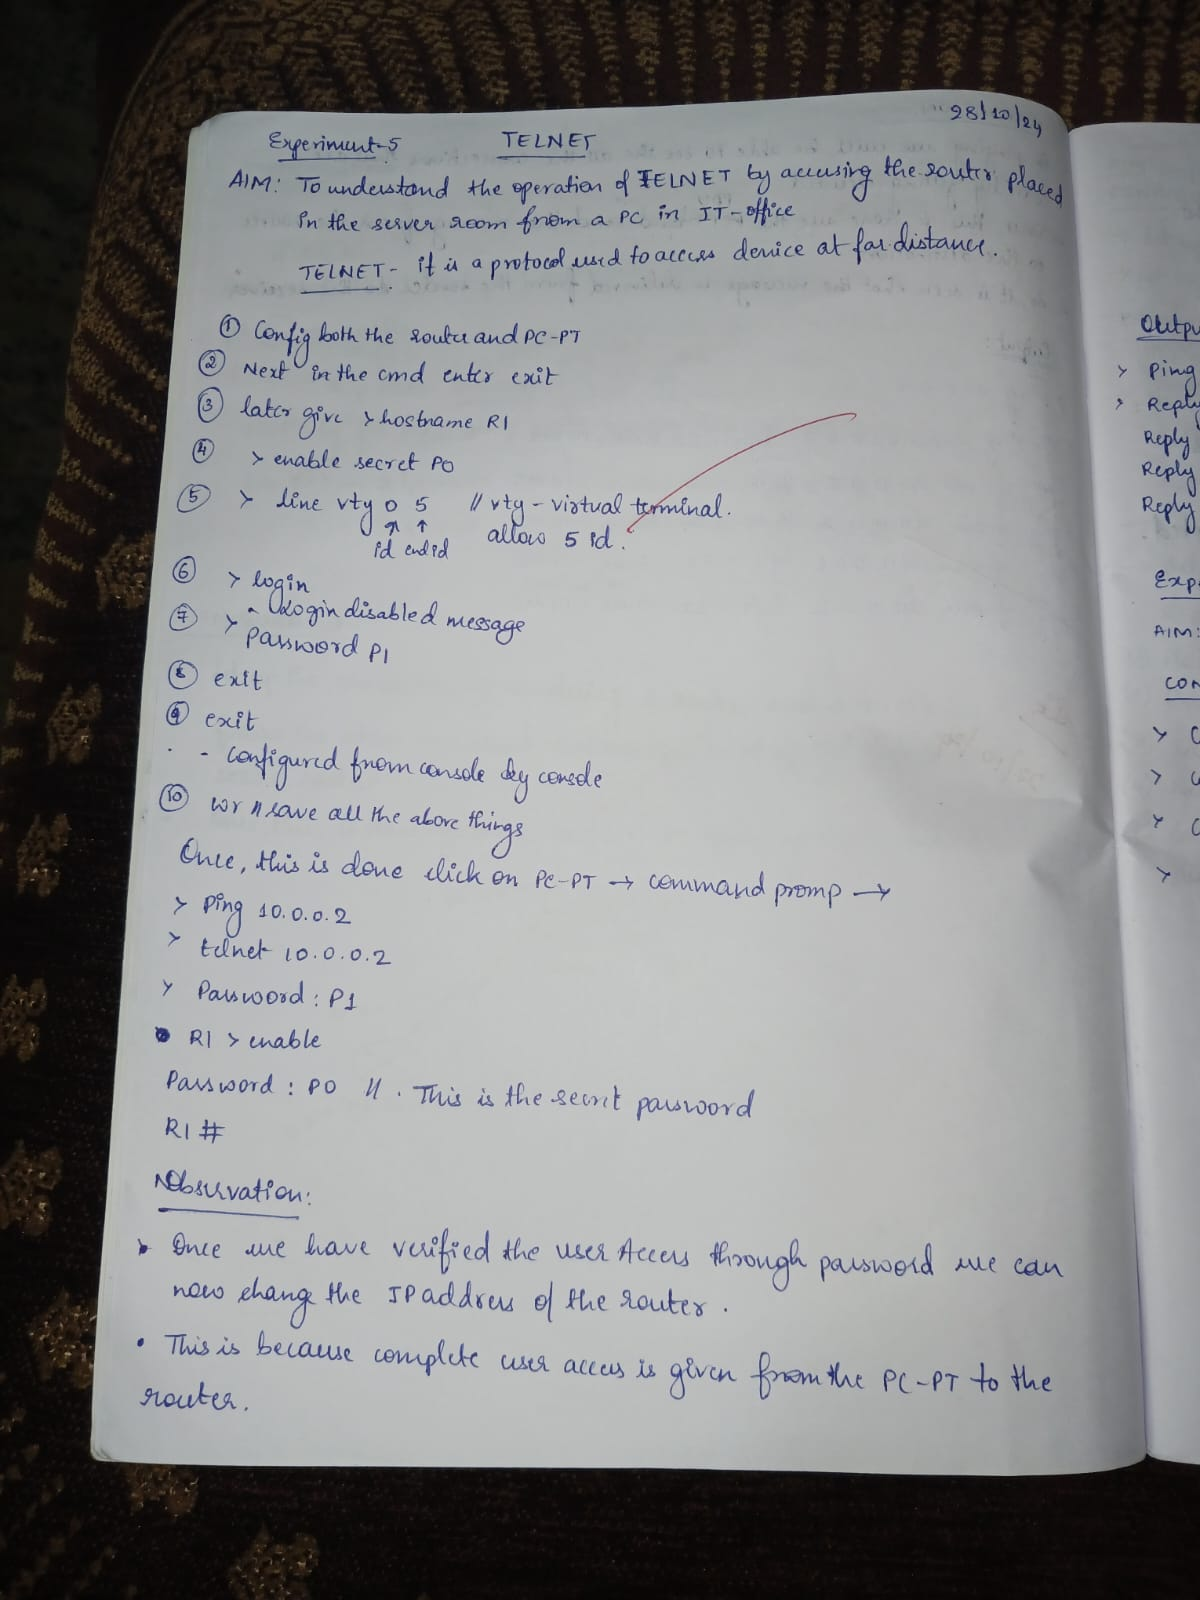 28/10/24
Experiment-5 TELNET
AIM: To understand the operation of TELNET by accessing the router placed
in the server room from a PC in IT-office
TELNET - it is a protocol used to access device at far distance.
① Config both the router and PC-PT
② Next in the cmd enter exit
③ later give > hostname R1
④ > enable secret P0
⑤ > line vty 0 5 // vty - virtual terminal.
id end id allow 5 id.
⑥ > login
- Login disabled message
⑦ > Password P1
⑧ exit
⑨ exit
- configured from console by console
⑩ wr // save all the above things
Once, this is done click on PC-PT → command promp →
> Ping 10.0.0.2
> telnet 10.0.0.2
> Password : P1
R1 > enable
Password : P0 // . This is the secret password
R1 #
Observation:
Once we have verified the user Access through password we can
now change the IP address of the router.
• This is because complete user access is given from the PC-PT to the
router.
Outpu
> Ping
> Reply
Reply
Reply
Reply
Exp
AIM:
CON
> C
>
> C
>